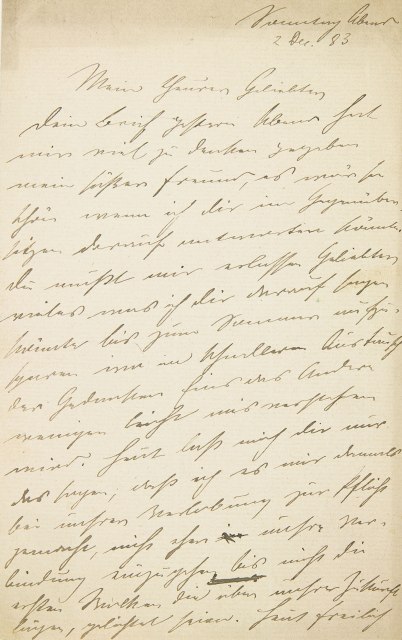 Sonntag Abend
2 Dec. 83
Mein theurer Geliebter
Dein Brief gestern Abend hat
mir viel zu denken gegeben
mein süßer Freund, es wäre so
schön wenn ich dir im Gegenüber-
sitzen darauf antworten könnte.
Du mußt mir erlassen Geliebter
vieles was ich dir darauf sagen
könnte bis zum Sommer aufzu-
sparen wo im schnellern Austausch
der Gedanken Eins das Andere
weniger leicht mißverstehen
wird. Heut laß mich dir nur
das sagen, daß ich es mir damals
bei unsrer Verlobung zur Pflicht
gemacht, nicht eher unsre Ver-
bindung einzugehen, bis nicht die
ersten Wolken die über unsrer Zukunft
liegen, gelichtet seien. Heut freilich